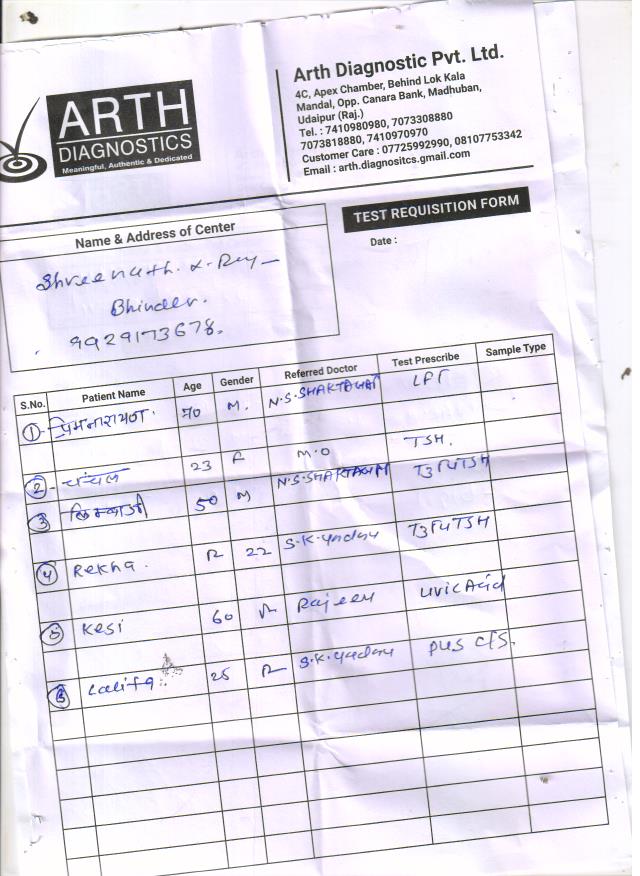 ARTH
DIAGNOSTICS
Meaningful, Authentic & Dedicated
Arth Diagnostic Pvt. Ltd.
4C, Apex Chamber, Behind Lok Kala
Mandal, Opp. Canara Bank, Madhuban,
Udaipur (Raj.)
Tel. : 7410980980, 7073308880
7073818880, 7410970970
Customer Care : 07725992990, 08107753342
Email : arth.diagnositcs.gmail.com
TEST REQUISITION FORM
Date :
Name & Address of Center
Shreenath. X-Ray
Bhinder.
9929173678.
S.No. Patient Name Age Gender Referred Doctor Test Prescribe Sample Type
1 प्रेमनारायण. 70 M. N.S.SHAKTAWAT LFT
2 चंचल 23 F M.O TSH.
3 50 M N.S.SHAKTAWAT T3T4TSH
4 Rekha. F 22 S.K.yadav T3T4TSH
5 Kesi 60 Rajeev uric Acid
6 Lalita 25 F S.K.yadav pus c/s.